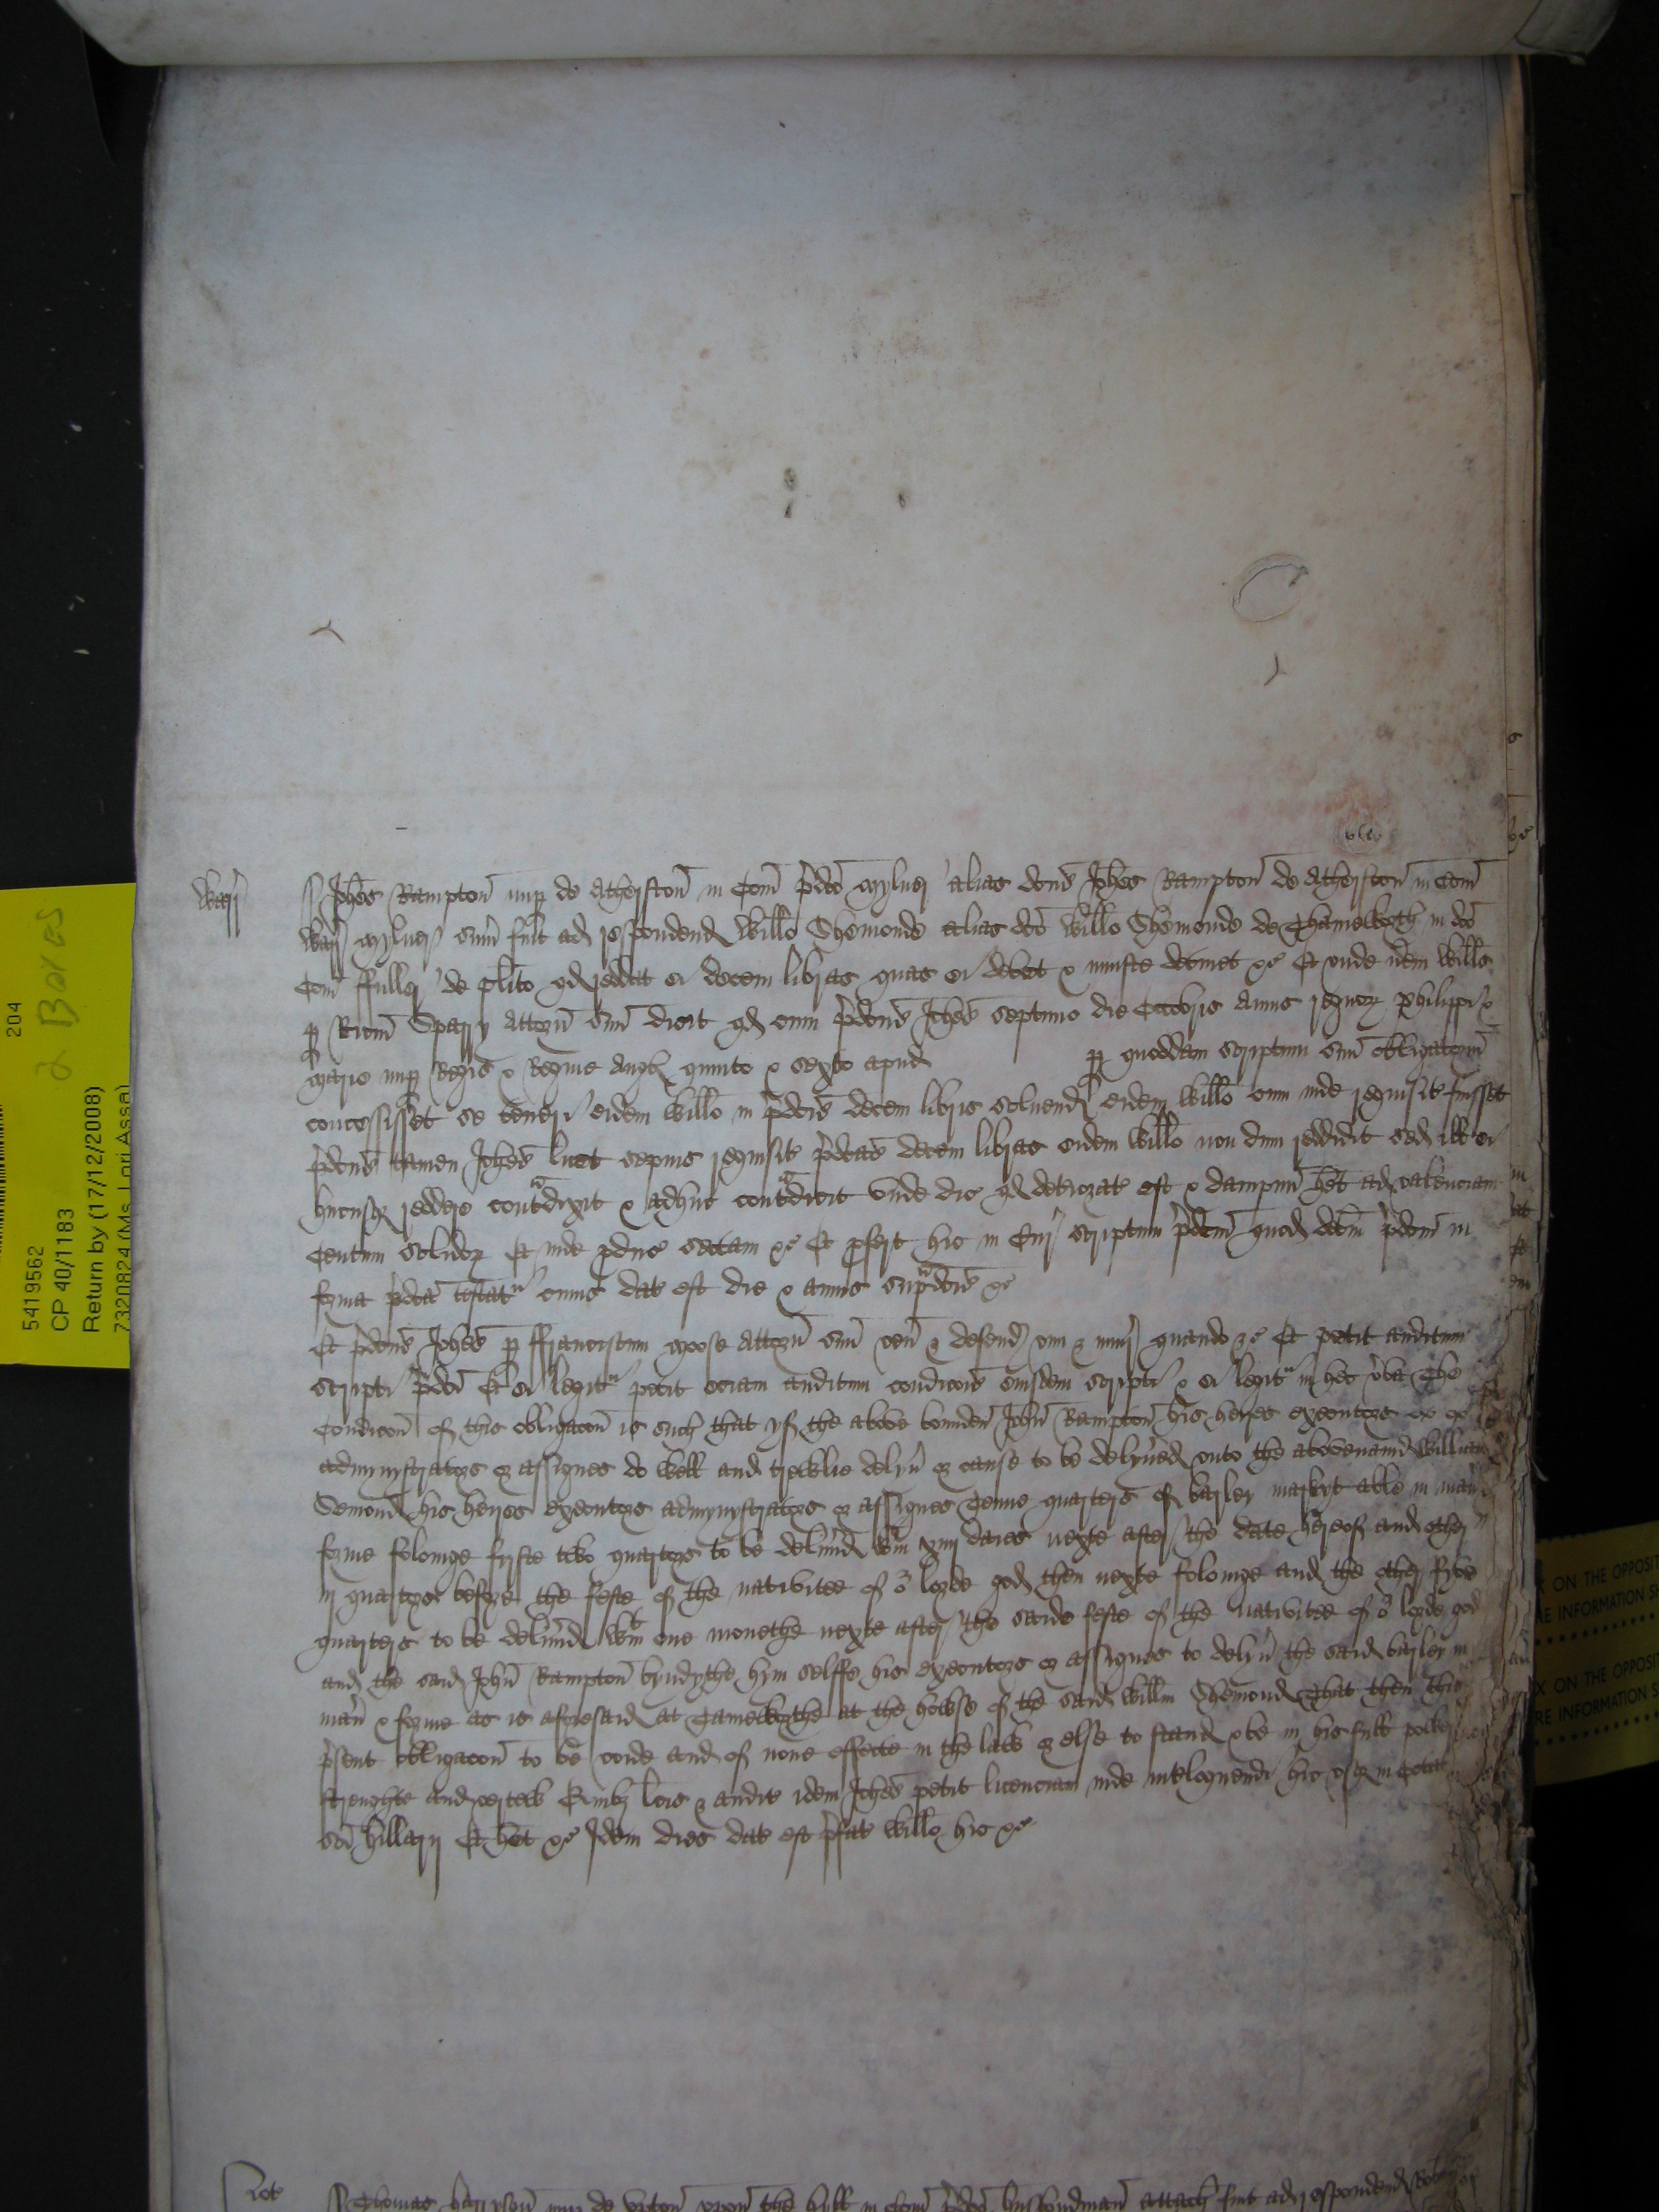 5419562 204
CP 40/1183
Return by (17/12/2008)
7320824 (Ms. Lori Assa)
2 Boxes
Warr
Johes Rampton nup de Atherston in Com pdco Mylner alias dcus Johes Rampton de Atherston in Com
Warr Mylner sum fuit ad respondend Willo Shemonde alias dco Willo Shemonde de Thameworth in dco
Com ffuller de plito qd reddat ei decem libras quas ei debet & iniuste detinet &c Et unde idem Wills
p Ricm Sparry Attorn suu dicit qd cum pdcus Johes septimo die Octobris annis regnor Philippi &
Marie nup Regis & Regine Angl quinto & sexto apud p quoddam scriptum suu obligatoriu
concessisset se teneri eidem Willo in pdcis decem libris solvend eidem Willo cum inde requisit fuisset
pdcus tamen Johes licet sepius requisit pdcas decem libras eidem Willo non dum reddidit sed ill ei
hucusq reddere contradixit & adhuc contradicit unde dic qd deteriorat est & dampnu het ad valenciam
Centum solidor Et inde pduc sectam &c Et pfert hic in Cur scriptum pdcm quod debm pdcm in
forma pdca testatr cuius dat est die & annis supradcis &c
Et pdcus Johes p ffranciscum Moose Attorn suu ven & defend vim & iniur quando &c Et petit auditum
scripti pdci Et ei legitr petit eciam auditum condicois eiusdem scripti & ei legitr in hec verba The
Condicon of this obligacon is such that yf the above bounden John Rampton his heyres executors
admynystrators or assignes do well and trewlie delyver or cause to be delyvered unto the abovenamed William
Semond his heyres executors admynystrators or assignes Tenne quarters of barley markyt able in maner
forme folowinge fyrste two quarters to be delivered wtin xiiij daies nexte after the date hereof and other
iij quarters before the feste of the nativitee of or lorde god then nexte folowinge and the other fyve
quarters to be delivered wtin one monethe nexte after the saide feste of the nativitee of or lorde god
and the said John Rampton byndythe hym selffe his executors or assignes to delyver the said barley in
maner & forme as is aforesaid at Tameworthe at the howse of the said Willm Shemond That then this
present obligacon to be voide and of none effecte in the law or else to stand & be in his full power
strenghte and vertew Quibz lcis & auditis idem Johes petit licenciam inde interloquendi hic usq in Octab
sci hillarij Et het &c Idem dies dat est pfat Willo hic &c
Thomas harryson nup de upton upon the hill in Com pdco husbondman attach fuit ad respondend